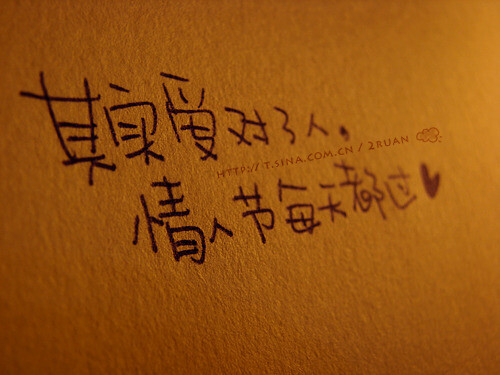 其实爱对了人。
HTTP://T.SINA.COM.CN/2RUAN
情人节每天都过